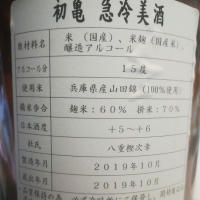 初亀 急冷美酒
原材料名 米(国産)、米麹(国産米)、
醸造アルコール
アルコール分 15度
使用米 兵庫県産山田錦(100%使用)
精米歩合 麹米:60% 掛米:70%
日本酒度 +5~+6
杜氏 八重樫次幸
製造年月 2019年10月
蔵出年月 2019年10月